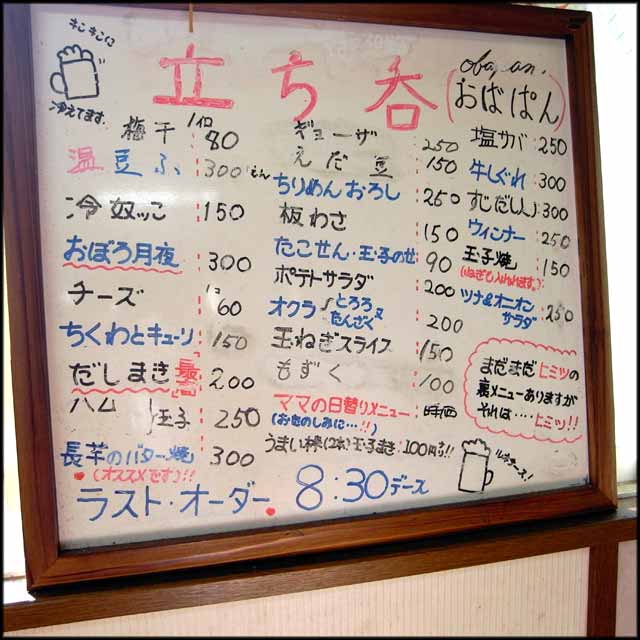 キンキンに
冷えてます。
立ち呑
(おばぱん)
梅干 1コ 80
温豆ふ 300
冷奴ッこ 150
おぼろ月夜 300
チーズ 1コ 60
ちくわとキューリ 150
だしまき 200
ハム 玉子 250
長芋のバター焼 300
(オススメです)!!
ギョーザ 250
えだ豆 150
ちりめんおろし 250
板わさ 150
たこせん・玉子のせ 90
ポテトサラダ 200
オクラ とろろ又
たんざく 200
玉ねぎスライス 150
もずく 100
ママの日替りメニュー 時価
(お楽のしみに…!!)
うまい棒(2本)玉子まき 100円
塩サバ 250
牛しぐれ 300
300
ウィンナー 250
玉子焼 150
ツナ&オニオン
サラダ 250
まだまだヒミツの
裏メニューありますが
それは・・・・ヒミツ!!
ラスト・オーダー 8:30デース